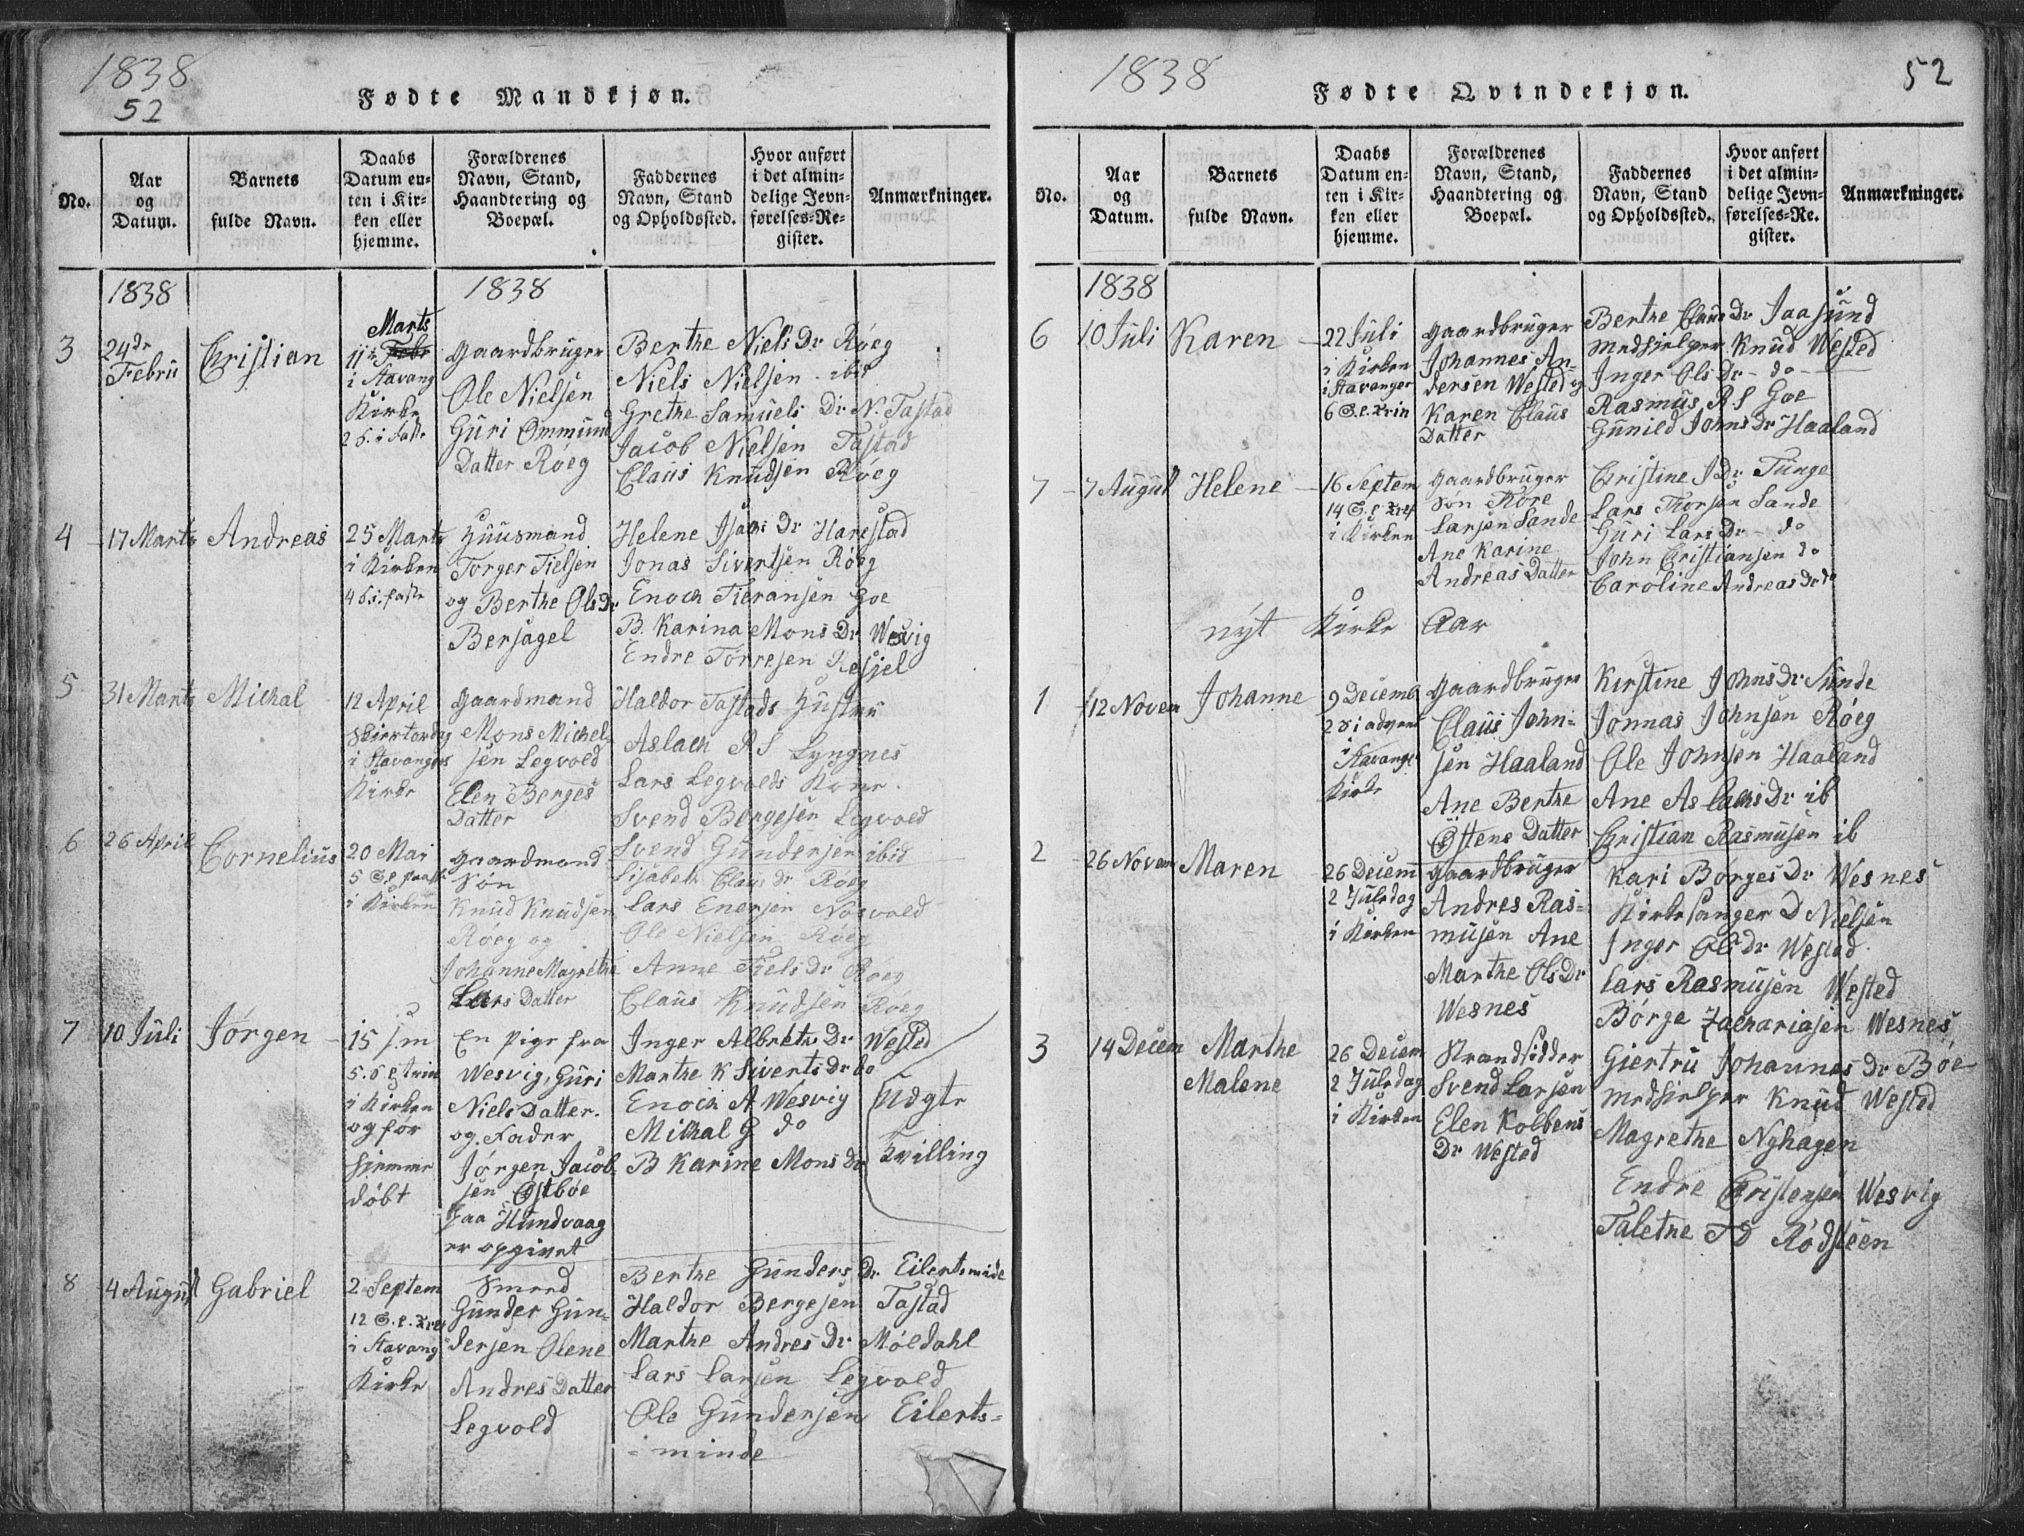 1838
52
Fødte Mandkjøn.
No.
Aar
og
Datum.
Barnets
fulde Navn.
Daabs
Datum en-
ten i Kir-
ken eller
hjemme.
Forældrenes
Navn, Stand,
Haandtering og
Boepæl.
Faddernes
Navn, Stand
og Opholdssted.
Hvor anført
i det almin-
delige Jevn-
førelses-Re-
gister.
Anmærkninger.
1838
1838
3
24de
Febru
Christian
Marts
11te Febr
i Stavang
Kirke
2 S. i Faste
Gaardbruger
Ole Nielsen
Guri Ommund
Datter Røeg
Berthe Niels Dr Røeg
Niels Nielsen ibid
Grethe Samuels Dr N. Tastad
Jacob Nielsen Tastad
Claus Knudsen Røeg
4
17 Marts
Andreas
25 Marts
i Kirken
4 S. i faste
Huusmand
Torger Tielsen
og Berthe Ols Dr
Bersagel
Helene Isacs Dr Harestad
Jonas Sivertsen Røeg
Enoch Tieransen Goe
B. Karina Mons Dr Wesvig
Endre Torresen Resiel
5
31 Marts
Michal
12 April
Skiertordag
i Stavangers
Kirke
Gaardmand
Mons Michel-
sen Legvold
Elen Berges
Datter
Haldor Tastads Hustru
Aslach R S Lyngnes
Lars Legvolds Kone.
Svend Bergesen Legvold
6
26 April
Cornelius
20 Mai
5 S. e. Paaske
i Kirken
Gaardmand
Søn
Knud Knudsen
Røeg og
Johanne Magrethe
Lars Datter
Svend Gundersen ibid
Lisabeth Claus Dr Røeg
Lars Enersen Nosvold
Ole Nielsen Røeg
Anne Tiels Dr Røeg
Claus Knudsen Røeg
7
10 Juli
Jørgen
15 J.m
5. S e Trin
i Kirken
og før
hjemme
døbt
En Pige fra
Wesvig, Guri
Niels Datter.
og Fader
Jørgen Jacob
sen Østbøe
paa Hundvaag
er opgivet
Inger Albreths Dr Wested
Marthe K Siverts Dr do
Enoch A Wesvig
Mikal G do
B Karine Mons Dr
Uægte
Tvilling
8
4 August
Gabriel
2 Septem
12 S. e. Tref
i Stavang
Kirke
Smed
Gunder Gun-
dersen Olene
Andres Datter
Legvold
Berthe Gunders Dr Eilertsminde
Haldor Bergesen Tastad
Marthe Andres Dr Møldahl
Lars Larsen Legvold
Ole Gundersen Eilerts-
minde
1838
52
Fødte Qvindekjøn.
No.
Aar
og
Datum.
Barnets
fulde Navn.
Daabs
Datum en-
ten i Kir-
ken eller
hjemme.
Forældrenes
Navn, Stand,
Haandtering og
Boepæl.
Faddernes
Navn, Stand
og Opholdssted.
Hvor anført
i det almin-
delige Jevn-
førelses-Re.
gister.
Anmærkninger.
1838
6
10 Juli
Karen
22 Juli
i Kirken
i Stavanger
6 S. e. Trin
Gaardbruger
Johannes An-
dersen Wested og
Karen Claus
Datter
Berthe Claus Dr Jaasund
Medhielper Knud Wested
Inger Ols Dr - do -
Rasmus R S Goe
Gunild Johns Dr Haaland
7
7 August
Helene
16 Septem
14 S. e. Tref
i Kirken
Gaardbruger
Søn Tore
Larsen Sande
Ane Karine
Andreas Datter
Christine J Dr Tunge
Lars Thorsen Sande
Guri Lars Dr - do
John Christiansen do
Caroline Andreas Dr do
nyt Kirke Aar
1
12 Novem
Johanne
9 Decemb
2 S i advent
i
Stavange
Kirke
Gaardbruger
Claus John-
sen Haaland
Ane Berthe
Østens Datter
Kirstine Johns Dr Sunde
Jonnas Johnsen Røeg
Ole Johnsen Haaland
Ane Aslachs Dr ib
Christian Rasmusen ib
2
26 Novem
Maren
26 Decem
2 Juledag
i Kirken
Gaardbruger
Andres Ras-
musen Ane
Marthe Ols Dr
Wesnes
Kari Børges Dr Wesnes
Kirkesanger D Nielsen
Inger Ols Dr Wested
Lars Rasmusen Wested
Børge Zachariasen Wesnes
3
14 Decem
Marthe
Malene
26 Decem
2 Juledag
i Kirken
Strandsidder
Svend Larsen
Elen Kolbens
Dr Wested
Giertru Johannes Dr Bøe
Medhielper Knud Wested
Magrethe Nyhagen
Endre Christensen Wesvig
Talethe T D Rødsteen